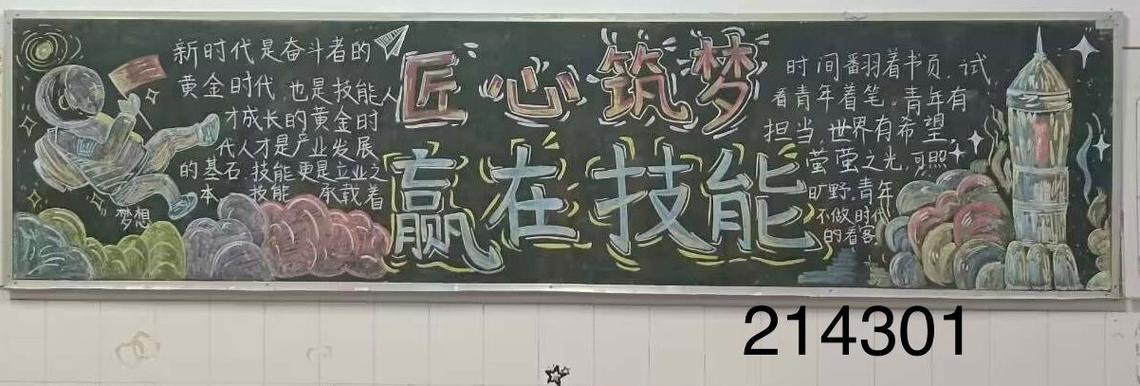 新时代是奋斗者的
黄金时代,也是技能人
才成长的黄金时
代人才是产业发展
的基石,技能更是立业之
本。技能 承载着
梦想
匠心筑梦
赢在技能
时间翻羽着书页,试
看青年着笔。青年有
担当,世界有希望
萤萤之光,可照
旷野。青年
不做时代
的看客
214301